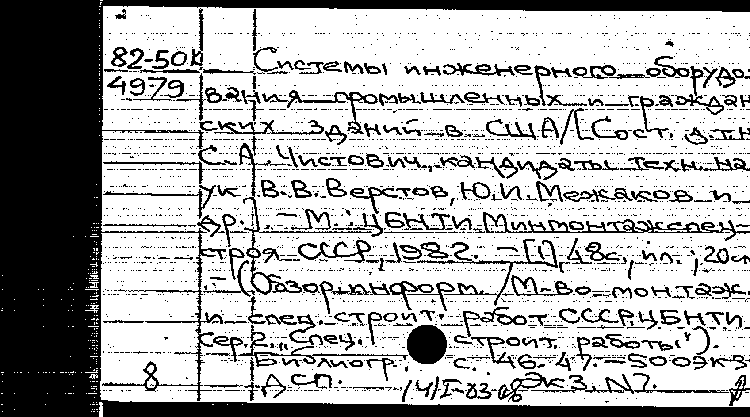 82-50к Системы инженерного оборудо-
4979 вания промышленных и граждан
ских зданий в США/[Сост. д.т.н
С.А. Чистович, кандидаты техн. на
ук В.В. Верстов, Ю.И. Межаков и
др.]. - М.: ЦБНТИ Минмонтажспец-
строя СССР, 1982. - [1], 48с., ил.; 20см
. - (Обзор.информ. /М-во монтаж.
и спец. строит. работ СССР, ЦБНТИ.
Сер.2, „Спец. строит. работы").
Библиогр.: с. 46-47. - 500экз.
8 Дсп. Экз. N7.